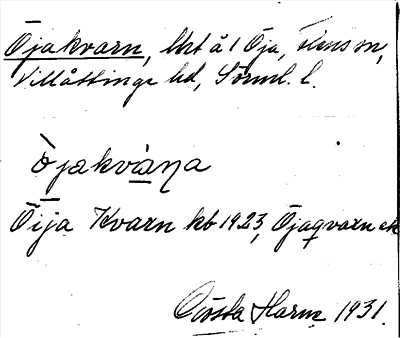 Öjakvarn, lht å 1 Öja, Flens sn,
Villåttinge hd, Sörml. l.
ö̀jakvàṇa
Öija Kvarn kb 1923, Öjaqvarn ek
Gösta Harne 1931.